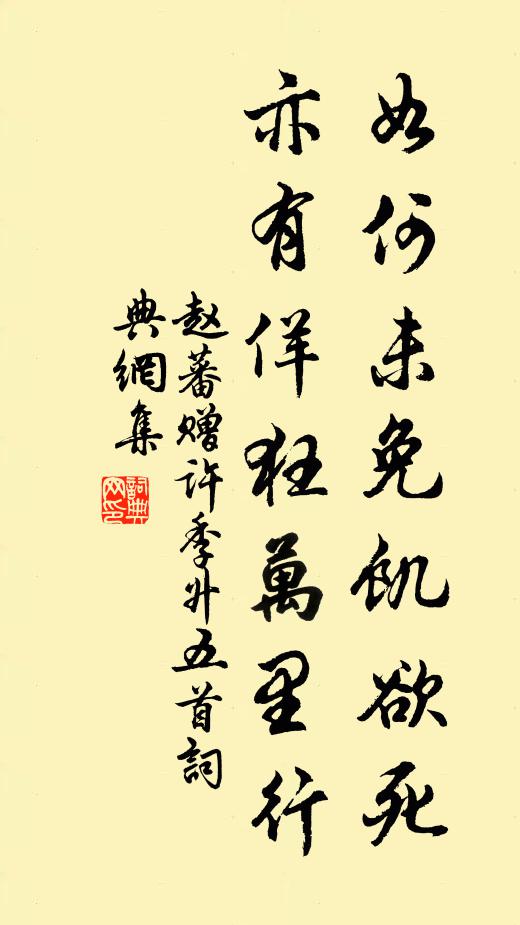 如何未免飢欲死
亦有佯狂萬里行
赵蕃赠许季升五首詞
典網集
詞典
网印